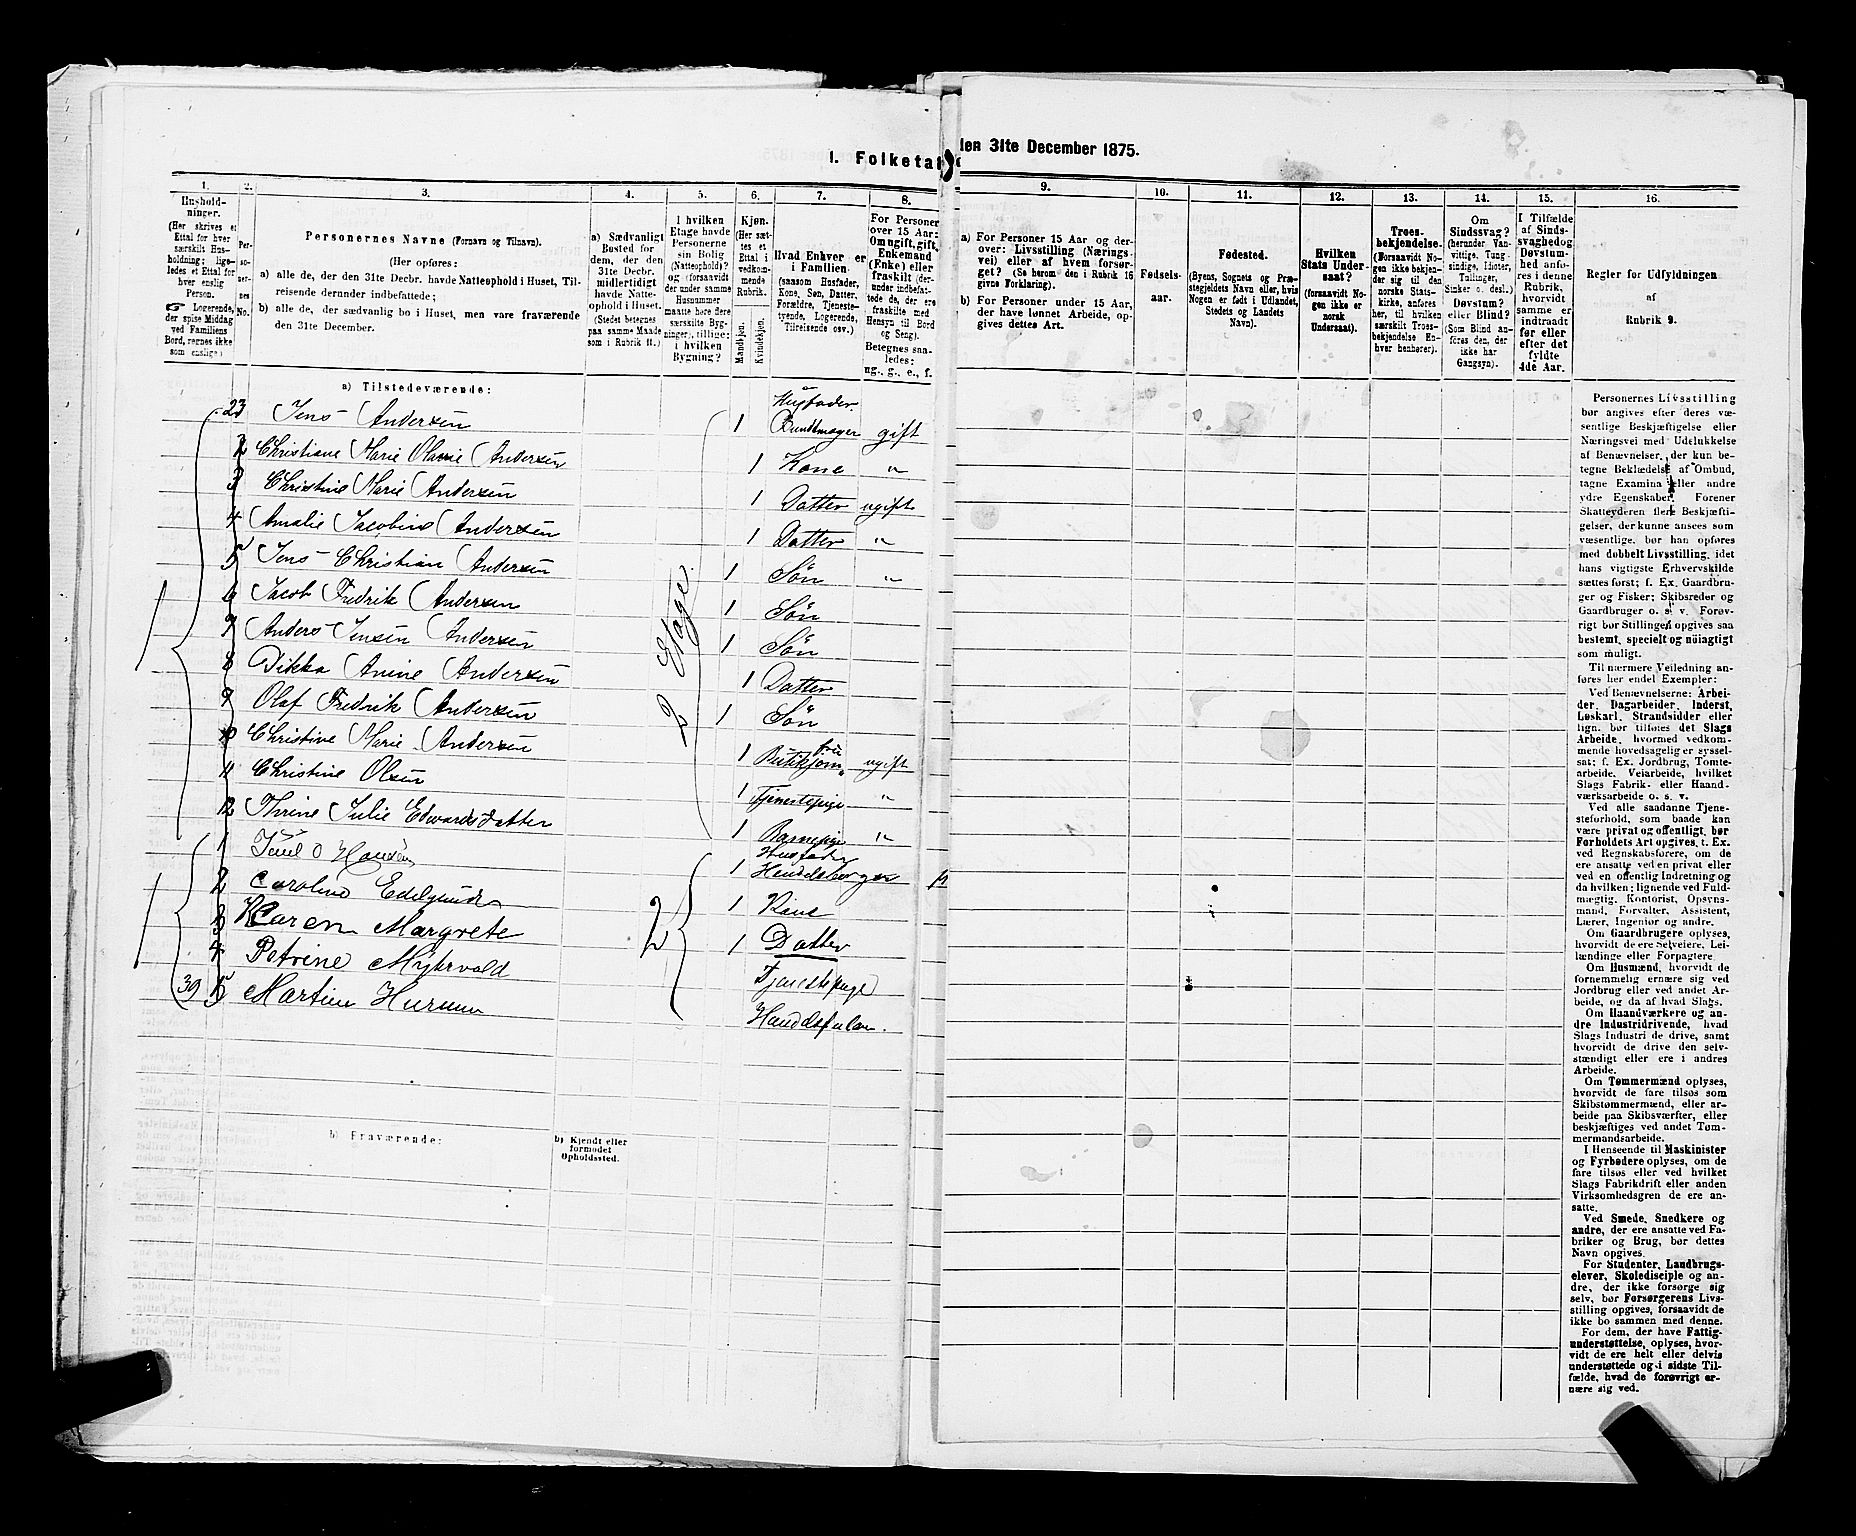 I. Folketa
den 31te December 1875.
1.
2.
3.
4.
5.
6.
7.
8.
9.
10.
11.
12.
13.
14.
15.
16.
Husholdninger.
(Her skrives et
Ettal for hver
særskilt Husholdning;
ligeledes et Ettal for
hver enslig
Person.
☞ Logerende,
der spise Middag
ved Familiens
Bord, regnes ikke
som enslige)
Personernes No.
Personernes Navne (Fornavn og Tilnavn).
(Her opføres:
a) alle de, der den 31te Decbr. havde Natteophold i Huset, Tilreisende derunder indbefattede;
b) alle de, der sædvanlig bo i Huset, men vare fraværende
den 31te December.
a) Sædvanligt
Bosted for
dem, der den
31te Decbr.
midlertidigt
havde Natteophold i Huset.
(Stedet betegnes
paa samme Maade
som i Rubrik 11.)
I hvilken
Etage havde
Personerne
sin Bolig
(Natteophold)?
og (forsaavidt
der under samme
Husnummer
maatte høre flere
særskilte Bygninger), tillige:
i hvilken
Bygning?
Kjøn.
(Her sættes et
Ettal i
vedkommende
Rubrik.
Mandkjøn.
Kvindekjøn.
Hvad Enhver er
i Familien
(saasom Husfader,
Kone, Søn, Datter,
Forældre, Tjenestetyende, Logerende,
Tilreisende osv.)
For Personer
over 15 Aar:
Om ugift, gift,
Enkemand
(Enke) eller
fraskilt (derunder indbefattede de, der ere
fraskilte med
Hensyn til Bord
og Seng).
Betegnes saaledes:
ug., g., e., f.
a) For Personer 15 Aar og derover: Livsstilling (Næringsvei) eller af hvem forsørget? (Se herom den i Rubrik 16
givne Forklaring).
b) For Personer under 15 Aar,
der have lønnet Arbeide, opgives dettes Art.
Fødselsaar.
Fødested.
(Byens, Sognets og Præstegjeldets Navn eller, hvis
Nogen er født i Udlandet,
Stedets og Landets
Navn).
Hvilken
Stats Undersaat?
(forsaavidt Nogen ikke er
norsk
Undersaat).
Troesbekjendelse.
(Forsaavidt Nogen ikke bekjender sig til den
norske Statskirke, anføres
her, til hvilken
særskilt Troesbekjendelse Enhver henhører).
Om
Sindssvag?
(herunder Vanvittige, Tungsindige, Idioter,
Tullinger,
Sinker o. desl.)
Døvstum?
eller Blind?
(Som Blind anføres den, der
ikke har
Gangsyn).
I Tilfælde
af Sindssvaghed og
Døvstumhed anføres i denne
Rubrik,
hvorvidt
samme er
indtraadt
før eller
efter det
fyldte
4de Aar.
Regler for Udfyldningen
af
Rubrik 9.
a) Tilstedeværende:
23 Jens Andersen 1 Husfader. Bundtmager gift
2 Christiane Marie Olavie Andersen 1 Kone "
3 Christine Marie Andersen 1 Datter ugift
4 Amalie Jacobine Andersen 1 Datter "
5 Jens Christian Andersen 1 Søn "
6 Jacob Fredrik Andersen 1 Søn
7 Anders Jensen Andersen 1 Søn
8 Dikka Anine Andersen 1 Datter
9 Olaf Fredrik Andersen 1 Søn
10 Christine Marie Andersen 1 Butikjomfru ugift
11 Christine Olsen 1 Tjenestepige "
12 Thrine Julie Edwardsdatter 1 Barnepige "
2 Etage.
1 O Hansen 1 Husfader Handelsborger
2 Caroline 1 Kone
3 Karen Margrete 1 Datter
4 Petrine Myhrvold Tjenestepige
(39) 5 Martin Hurum
2
b) Fraværende:
b) Kjendt eller
formodet
Opholdssted.
Personernes Livsstilling
bør angives efter deres væsentlige Beskjæftigelse eller
Næringsvei med Udelukkelse
af Benævnelser, der kun betegne Beklædelse af Ombud,
tagne Examina eller andre
ydre Egenskaber. Forener
Skatteyderen flere Beskjæftigelser, der kunne ansees som
væsentlige, bør han opføres
med dobbelt Livsstilling, idet
hans vigtigste Erhvervskilde
sættes først; f. Ex. Gaardbruger og Fisker; Skibsreder og
Gaardbruger o. s. v. Forøvrigt bør Stillingen opgives saa
bestemt, specielt og nøiagtigt
som muligt.
Til nærmere Veiledning anføres her endel Exempler:
Ved Benævnelserne: Arbeider, Dagarbeider, Inderst,
Løskarl, Strandsidder eller
lign. bør tilføres det Slags
Arbeide, hvormed vedkommende hovedsagelig er sysselsat; f. Ex. Jordbrug, Tomtearbeide, Veiarbeide, hvilket
Slags Fabrik- eller Haandværksarbeide o. s. v.
Ved alle saadanne Tjenesteforhold, som baade kan
være privat og offentlig, bør
Forholdets Art opgives, t. Ex.
ved Regnskabsførere, om de
ere ansatte ved en privat eller
ved en offentlig Indretning og
da hvilken; lignende ved Fuldmægtig, Kontorist, Opsynsmand, Forvalter, Assistent,
Lærer, Ingeniør og andre.
Om Gaardbrugere oplyses,
hvorvidt de ere Selveiere, Leilændinge eller Forpagtere.
Om Husmænd, hvorvidt de
fornemmelig ernære sig ved
Jordbrug eller ved andet Arbeide, og da af hvad Slags.
Om Haandværkere og andre Industridrivende, hvad
Slags Industri de drive, samt
hvorvidt de drive den selvstændigt eller ere i andres
Arbeide.
Om Tømmermænd oplyses,
hvorvidt de fare tilsøs som
Skibstømmermænd, eller arbeide paa Skibsværfter, eller
beskjæftiges ved andet Tømmermandsarbeide.
I Henseende til Maskinister
og Fyrbødere oplyses, om de
fare tilsøs eller ved hvilket
Slags Fabrikdrift eller anden
Virksomhedsgren de ere ansatte.
Ved Smede, Snedkere og
andre, der ere ansatte ved Fabriker og Brug, bør dettes
Navn opgives.
For Studenter, Landbrugselever, Skoledisciple og andre, der ikke forsørge sig
selv, bør Forsørgerens Livsstilling opgives, forsaavidt de
ikke bo sammen med denne.
For dem, der have Fattigunderstøttelse, oplyses, hvorvidt de ere helt eller delvis
understøttede og i sidste Tilfælde, hvad de forøvrigt ernære sig ved.